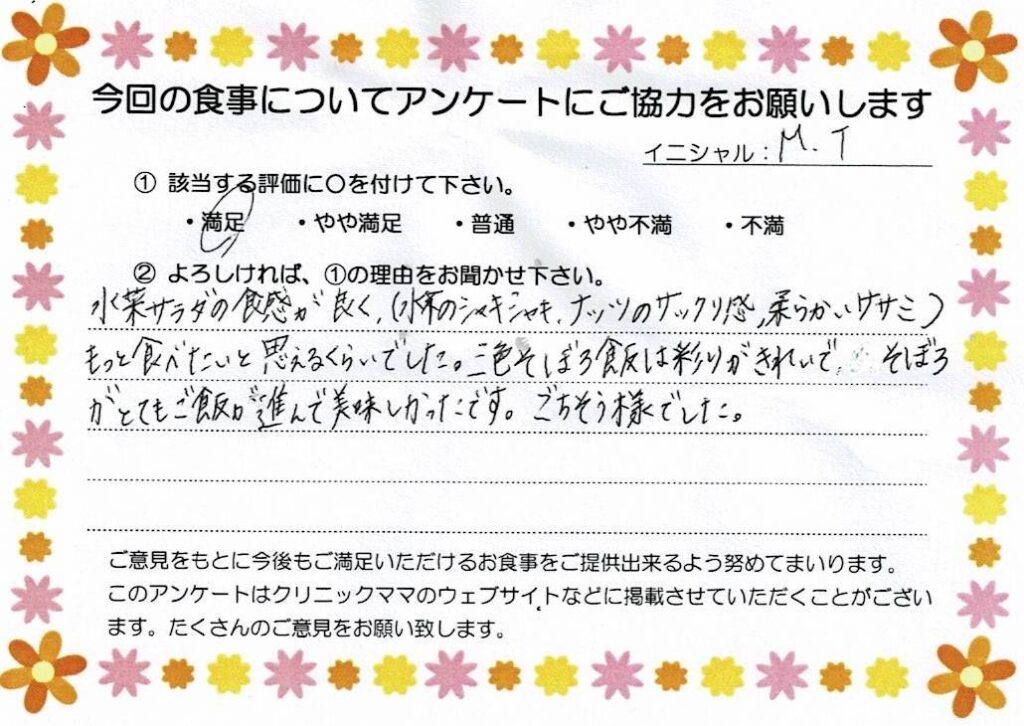 今回の食事についてアンケートにご協力をお願いします
イニシャル：M.T
① 該当する評価に○を付けて下さい。
・満足 ・やや満足 ・普通 ・やや不満 ・不満
② よろしければ、①の理由をお聞かせ下さい。
水菜サラダの食感が良く、(水菜のシャキシャキ、ナッツのサックリ感、柔らかいササミ)
もっと食べたいと思えるくらいでした。三色そぼろ飯は彩りがきれいで そぼろ
がとてもご飯が進んで美味しかったです。ごちそう様でした。
ご意見をもとに今後もご満足いただけるお食事をご提供出来るよう努めてまいります。
このアンケートはクリニックママのウェブサイトなどに掲載させていただくことがござい
ます。たくさんのご意見をお願い致します。